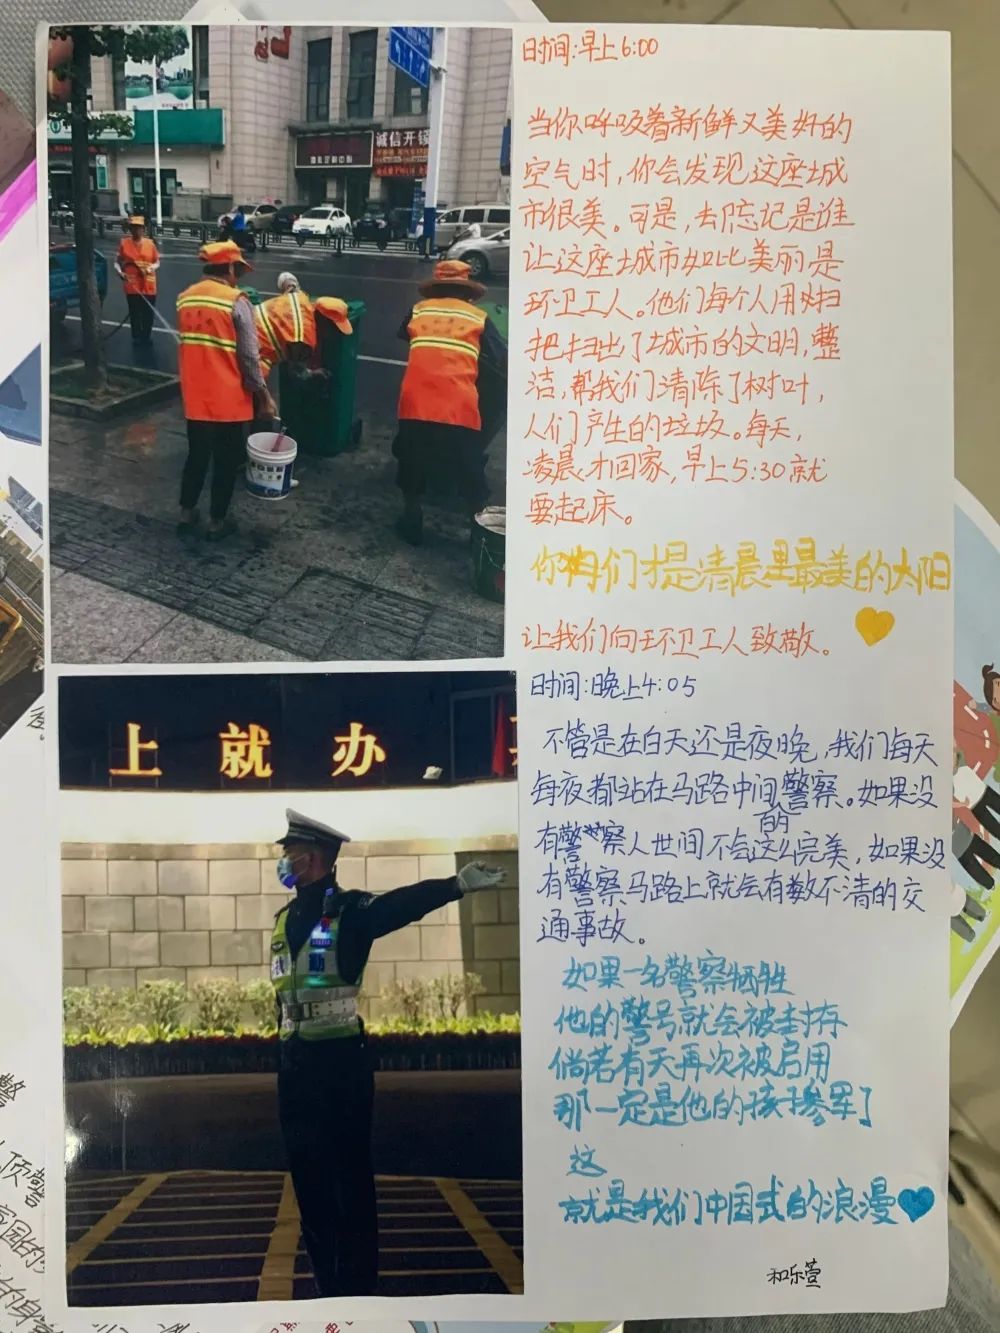 时间:早上6:00
当你呼吸着新鲜又美好的
空气时,你会发现这座城
市很美。可是,去忘记是谁
让这座城市如此美丽是
环卫工人。他们每个人用扫
把扫出了城市的文明,整
洁,帮我们清除了树叶,
人们产生的垃圾。每天,
凌晨才回家,早上5:30就
要起床。
你们才是清晨里最美的太阳
让我们向环卫工人致敬。
诚信开锁
上就办
时间:晚上4:05
不管是在白天还是夜晚,我们每天
每夜都站在马路中间的警察。如果没
有警察人世间不会这么完美,如果没
有警察马路上就会有数不清的交
通事故。
如果一名警察牺牲
他的警号就会被封存
倘若有天再次被启用
那一定是他的孩子参军了
这
就是我们中国式的浪漫
和乐萱
警
顶警